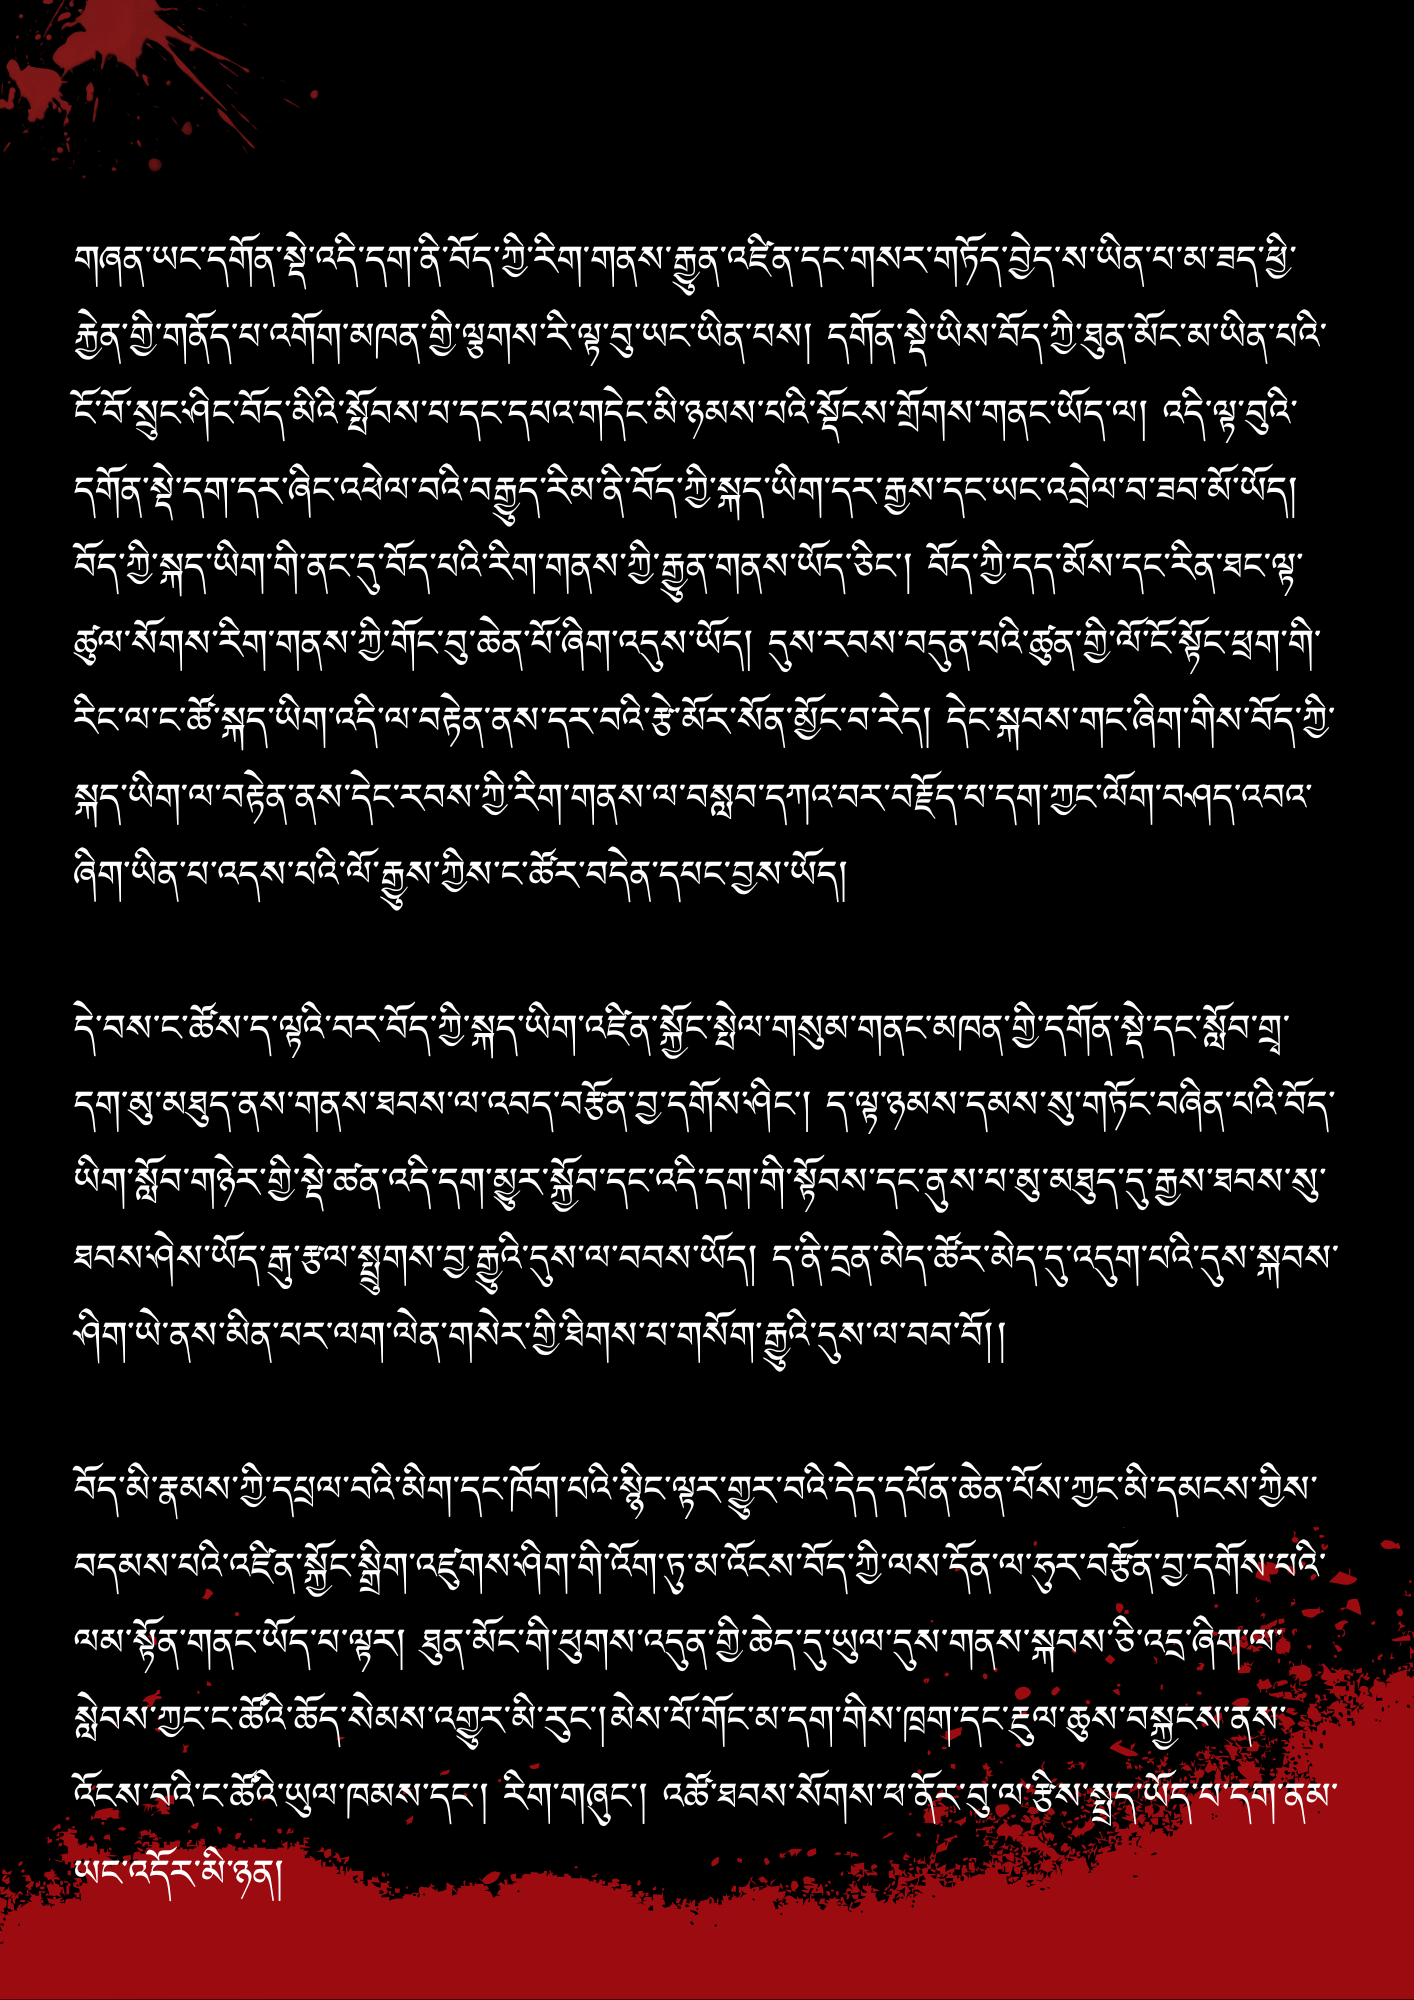 གཞན་ཡང་དགོན་སྡེ་འདི་དག་ནི་བོད་ཀྱི་རིག་གནས་རྒྱུན་འཛིན་དང་གསར་གཏོད་བྱེད་ས་ཡིན་པ་མ་ཟད་ཕྱི་
རྐྱེན་གྱི་གནོད་པ་འགོག་མཁན་གྱི་ལྕགས་རི་ལྟ་བུ་ཡང་ཡིན་པས། དགོན་སྡེ་ཡིས་བོད་ཀྱི་ཐུན་མོང་མ་ཡིན་པའི་
ངོ་བོ་སྲུང་ཤིང་བོད་མིའི་སྤོབས་པ་དང་དཔའ་གདེང་མི་ཉམས་པའི་སྡོངས་གྲོགས་གནང་ཡོད་ལ། འདི་ལྟ་བུའི་
དགོན་སྡེ་དག་དར་ཞིང་འཕེལ་བའི་བརྒྱུད་རིམ་ནི་བོད་ཀྱི་སྐད་ཡིག་དར་རྒྱས་དང་ཡང་འབྲེལ་བ་ཟབ་མོ་ཡོད།
བོད་ཀྱི་སྐད་ཡིག་གི་ནང་དུ་བོད་པའི་རིག་གནས་ཀྱི་རྒྱུན་གནས་ཡོད་ཅིང་། བོད་ཀྱི་དད་མོས་དང་རིན་ཐང་ལྟ་
ཚུལ་སོགས་རིག་གནས་ཀྱི་གོང་བུ་ཆེན་པོ་ཞིག་འདུས་ཡོད། དུས་རབས་བདུན་པའི་ཚུན་གྱི་ལོ་ངོ་སྟོང་ཕྲག་གི་
རིང་ལ་ང་ཚོ་སྐད་ཡིག་འདི་ལ་བརྟེན་ནས་དར་བའི་རྩེ་མོར་སོན་མྱོང་བ་རེད། དེང་སྐབས་གང་ཞིག་གིས་བོད་ཀྱི་
སྐད་ཡིག་ལ་བརྟེན་ནས་དེང་རབས་ཀྱི་རིག་གནས་ལ་བསླབ་དཀའ་བར་བརྗོད་པ་དག་ཀྱང་ལོག་བཤད་འབའ་
ཞིག་ཡིན་པ་འདས་པའི་ལོ་རྒྱུས་ཀྱིས་ང་ཚོར་བདེན་དཔང་བྱས་ཡོད།
དེ་བས་ང་ཚོས་ད་ལྟའི་བར་བོད་ཀྱི་སྐད་ཡིག་འཛིན་སྐྱོང་སྤེལ་གསུམ་གནང་མཁན་གྱི་དགོན་སྡེ་དང་སློབ་གྲྭ་
དག་མུ་མཐུད་ནས་གནས་ཐབས་ལ་འབད་བརྩོན་བྱ་དགོས་ཤིང་། ད་ལྟ་ཉམས་དམས་སུ་གཏོང་བཞིན་པའི་བོད་
ཡིག་སློབ་གཉེར་གྱི་སྡེ་ཚན་འདི་དག་མྱུར་སྐྱོབ་དང་འདི་དག་གི་སྟོབས་དང་ནུས་པ་མུ་མཐུད་དུ་རྒྱས་ཐབས་སུ་
ཐབས་ཤེས་ཡོད་རྒུ་རྩལ་སྤྲུགས་བྱ་རྒྱུའི་དུས་ལ་བབས་ཡོད། ད་ནི་དྲན་མེད་ཚོར་མེད་དུ་འདུག་པའི་དུས་སྐབས་
ཤིག་ཡེ་ནས་མིན་པར་ལག་ལེན་གསེར་གྱི་ཐིགས་པ་གསོག་རྒྱུའི་དུས་ལ་བབ་བོ།།
བོད་མི་རྣམས་ཀྱི་དཔྲལ་བའི་མིག་དང་ཁོག་པའི་སྙིང་ལྟར་གྱུར་བའི་དེད་དཔོན་ཆེན་པོས་ཀྱང་མི་དམངས་ཀྱིས་
བདམས་པའི་འཛིན་སྐྱོང་སྒྲིག་འཛུགས་ཤིག་གི་འོག་ཏུ་མ་འོངས་བོད་ཀྱི་ལས་དོན་ལ་ཧུར་བརྩོན་བྱ་དགོས་པའི་
ལམ་སྟོན་གནང་ཡོད་པ་ལྟར། ཐུན་མོང་གི་ཕུགས་འདུན་གྱི་ཆེད་དུ་ཡུལ་དུས་གནས་སྐབས་ཅི་འདྲ་ཞིག་ལ་
སླེབས་ཀྱང་ང་ཚོའི་ཆོད་སེམས་འགྱུར་མི་རུང་།མེས་པོ་གོང་མ་དག་གིས་ཁྲག་དང་རྔུལ་ཆུས་བསྐྱངས་ནས་
འོངས་བའི་ང་ཚོའི་ཡུལ་ཁམས་དང་། རིག་གཞུང་། འཚོ་ཐབས་སོགས་ཕ་ནོར་བུ་ལ་རྩིས་སྤྲད་ཡོད་པ་དག་ནམ་
ཡང་འདོར་མི་ཉན།